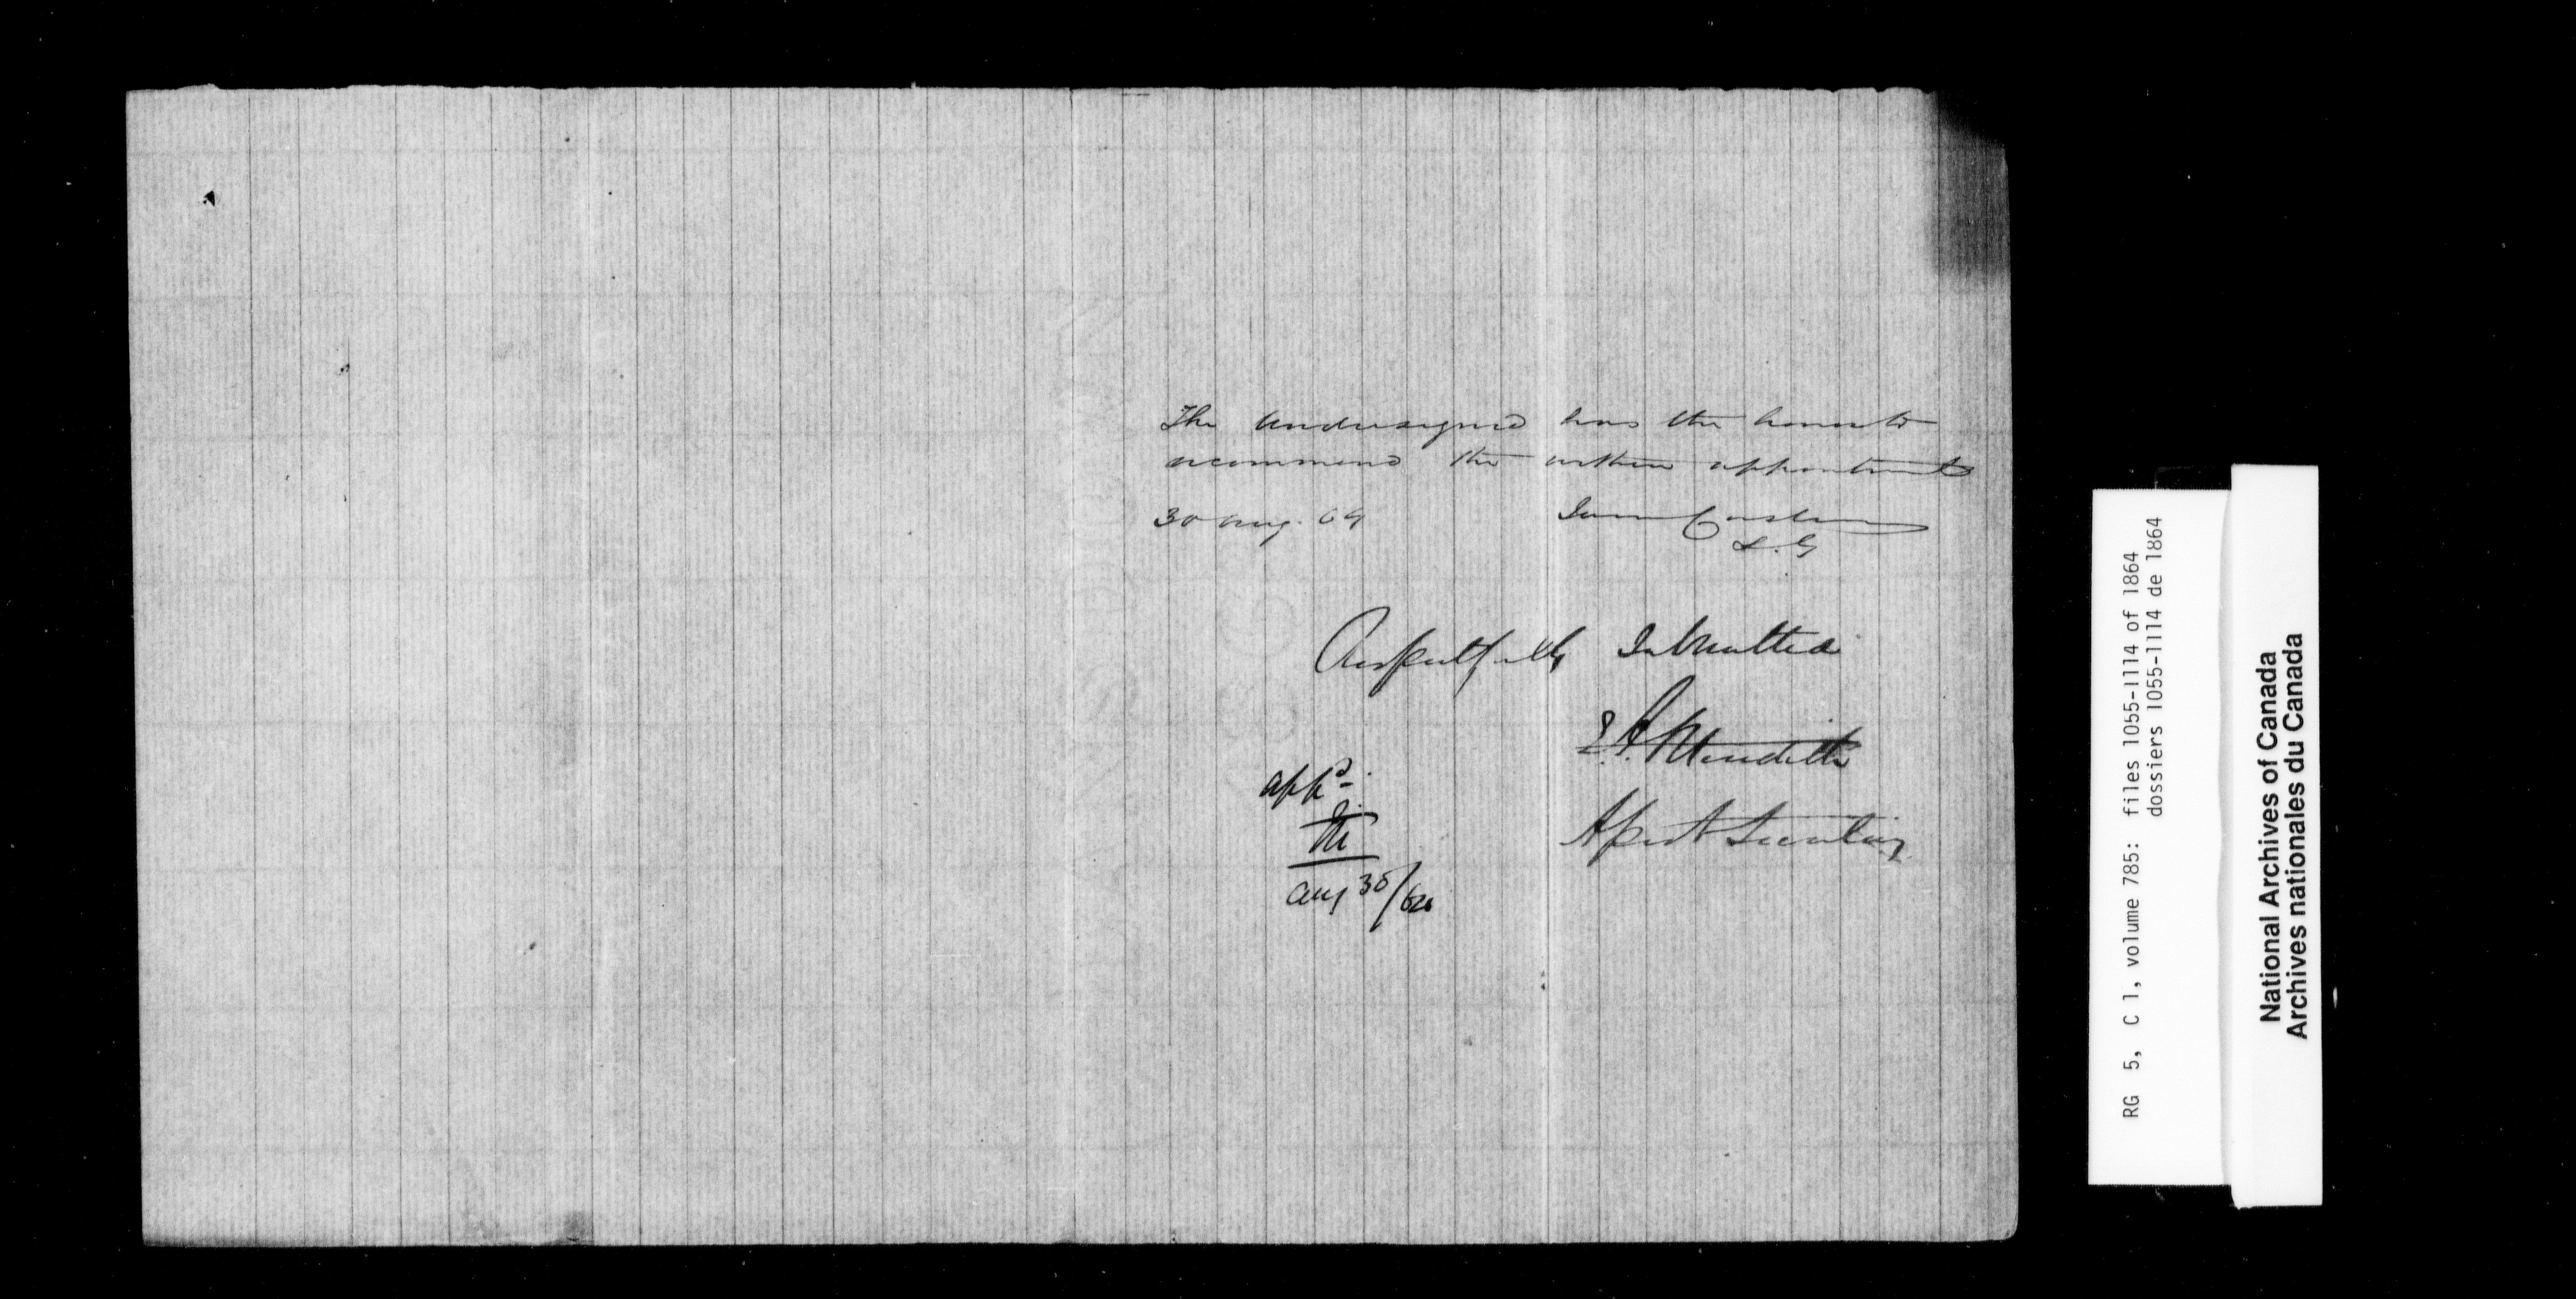 The undersigned has the honor to
recommend the within appointment
30 Aug. 64
James Cockburn
S. G
Respectfully Submitted
E. A. Meredith
Asst Secretary
appd.
Aug 30/64
RG 5, C 1, volume 785: files 1055-1114 of 1864
dossiers 1055-1114 de 1864
National Archives of Canada
Archives nationales du Canada